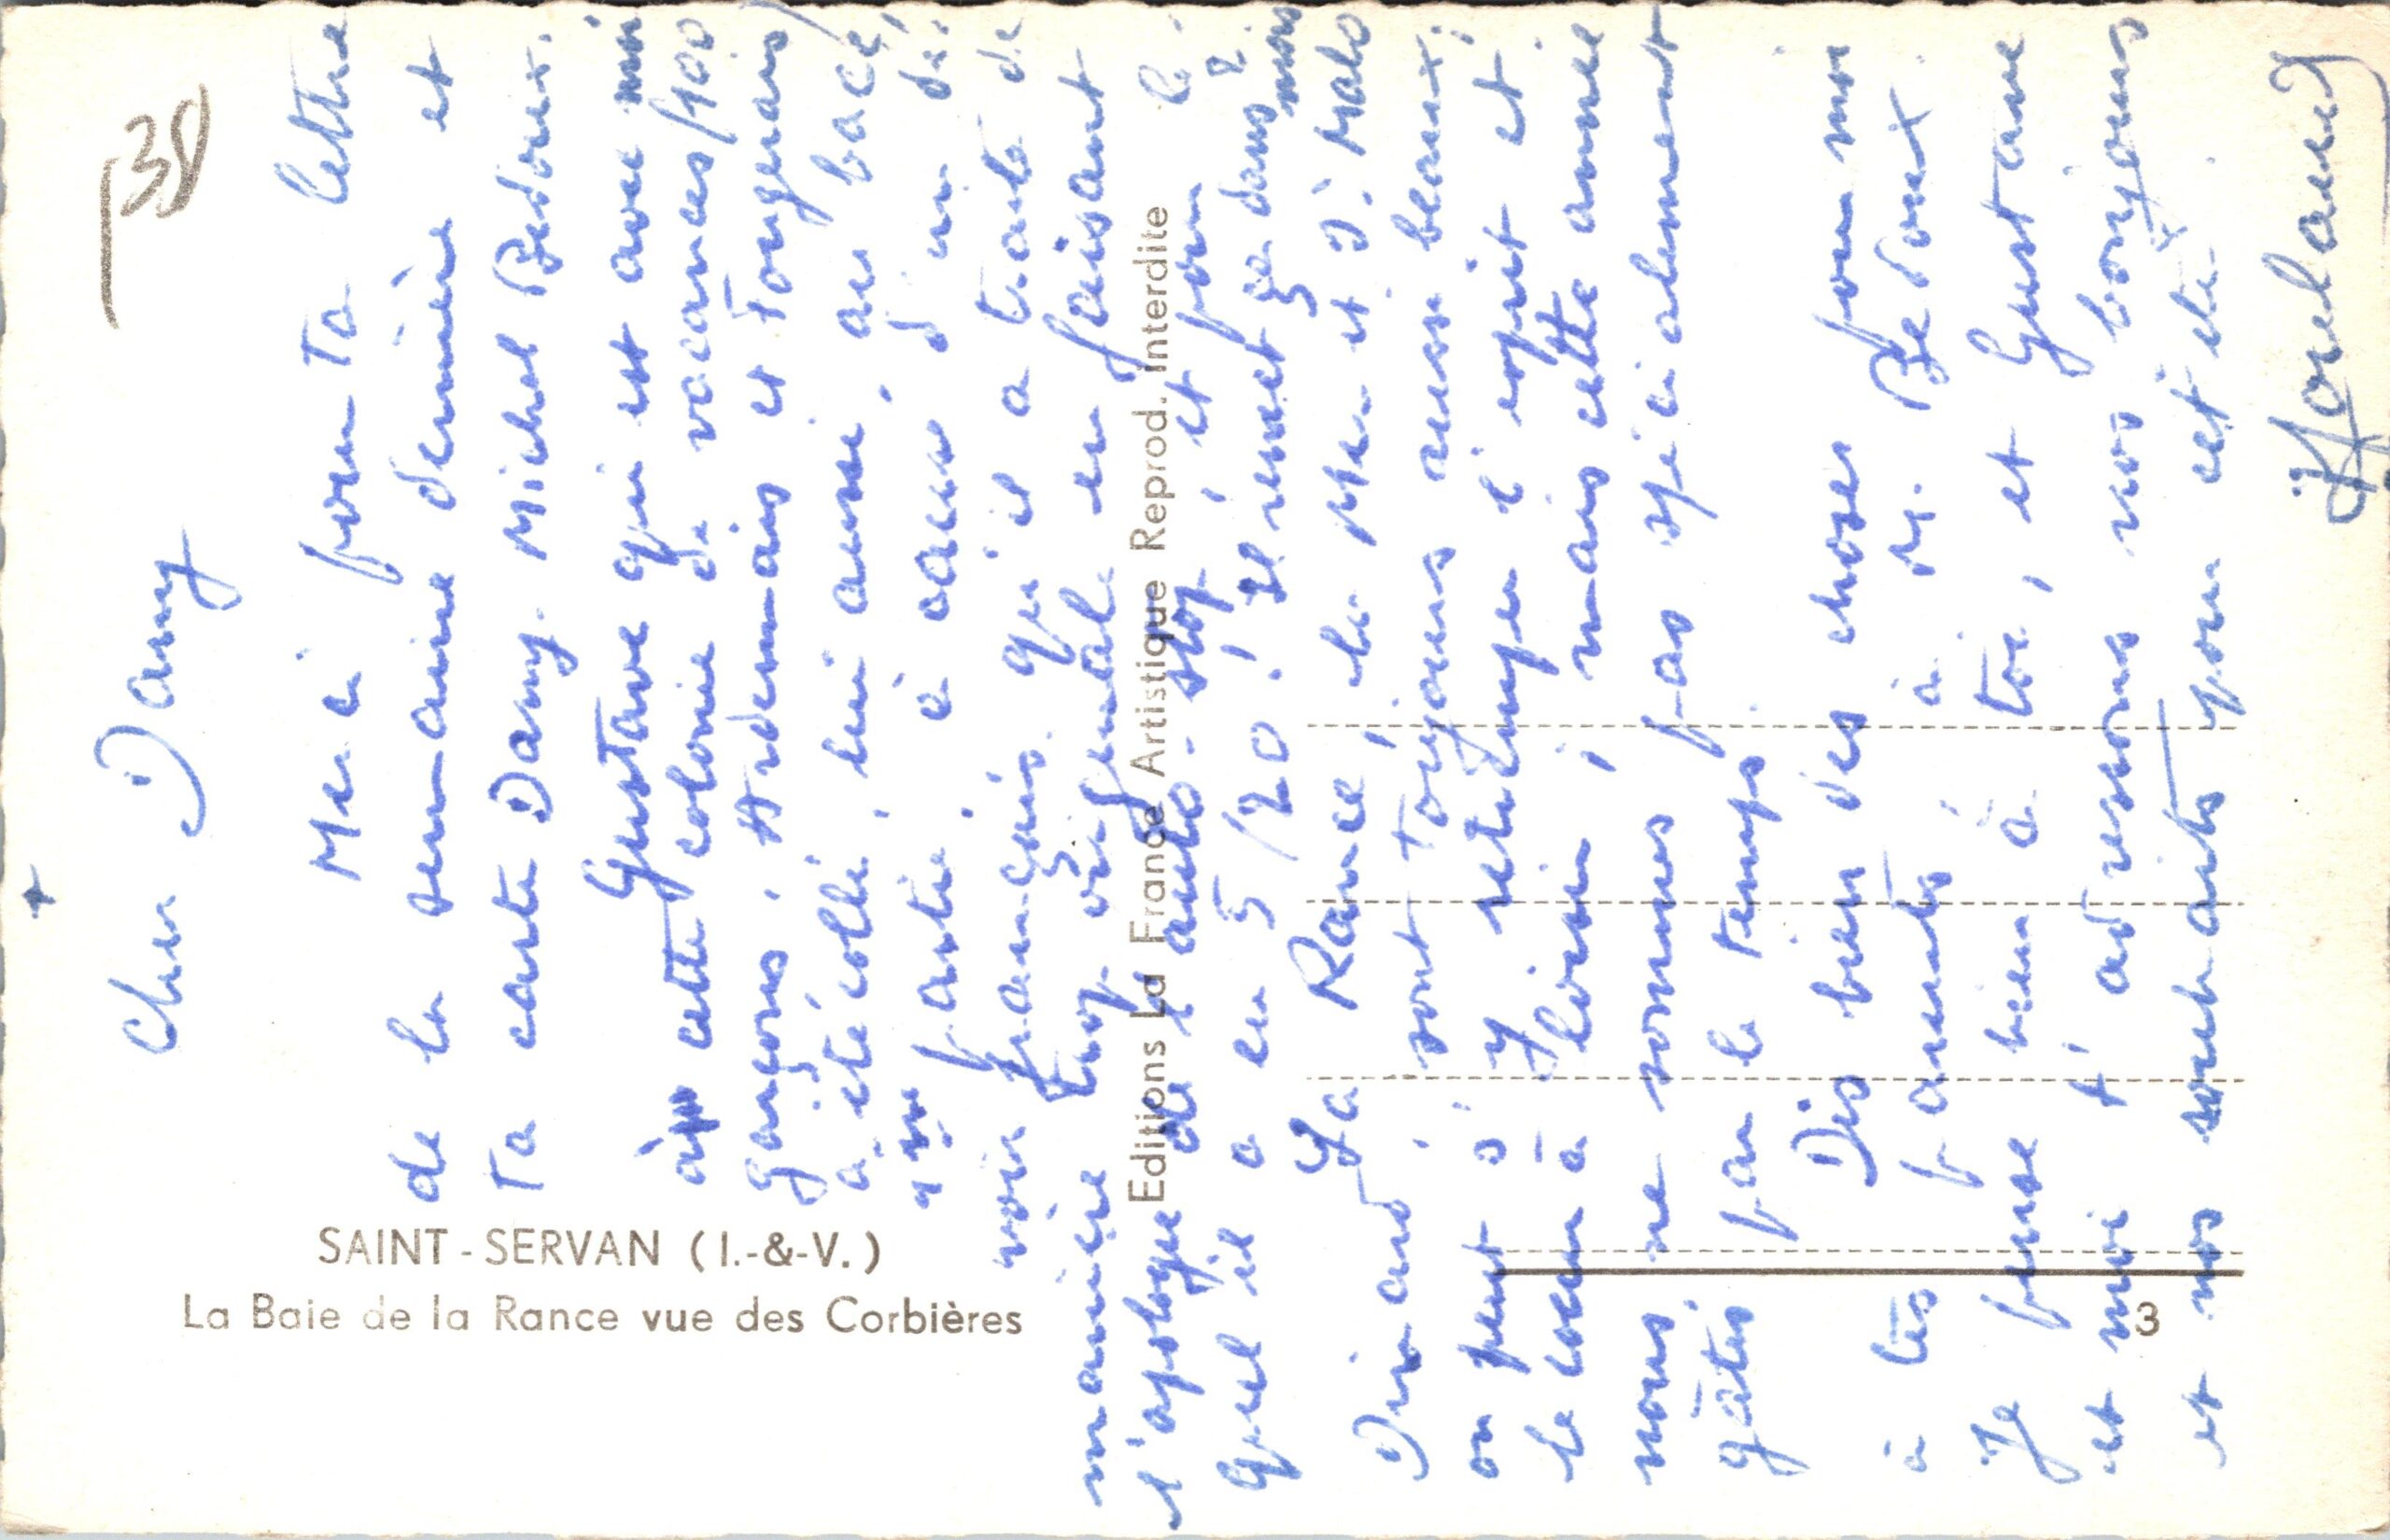 +
138
Cher Dany
Merci pour ta lettre
de la semaine dernière et
ta carte Dany. Michel Bedoux.
Gustave qui est avec moi
à cette colonie de vacances (400
garçons : Ardennais et Tongenais)
a été collé, lui aussi, au bacc,
1re partie, à cause d'un de
voir français qu'il a traité de
manière trop originale en faisant
l'apologie de l'auto-stop, et pour le
quel il a eu 5/20 ! Il remet ça dans 2 mois
La Rance, la mer et St Malo
Dinard sont toujours aussi beaux;
on peut s'y retremper l'esprit et
le coeur à loisir; mais cette année
nous ne sommes pas spécialement
gâtés par le temps.
Dis bien des choses pour moi
à tes parents, à M. Bedoux.
Je pense bien à toi, et Gustave
et moi t'adressons nos bonjours
et nos souhaits pour cet été.
SAINT-SERVAN (I.-&-V.)
La Baie de la Rance vue des Corbières
Editions La France Artistique Reprod. Interdite
3